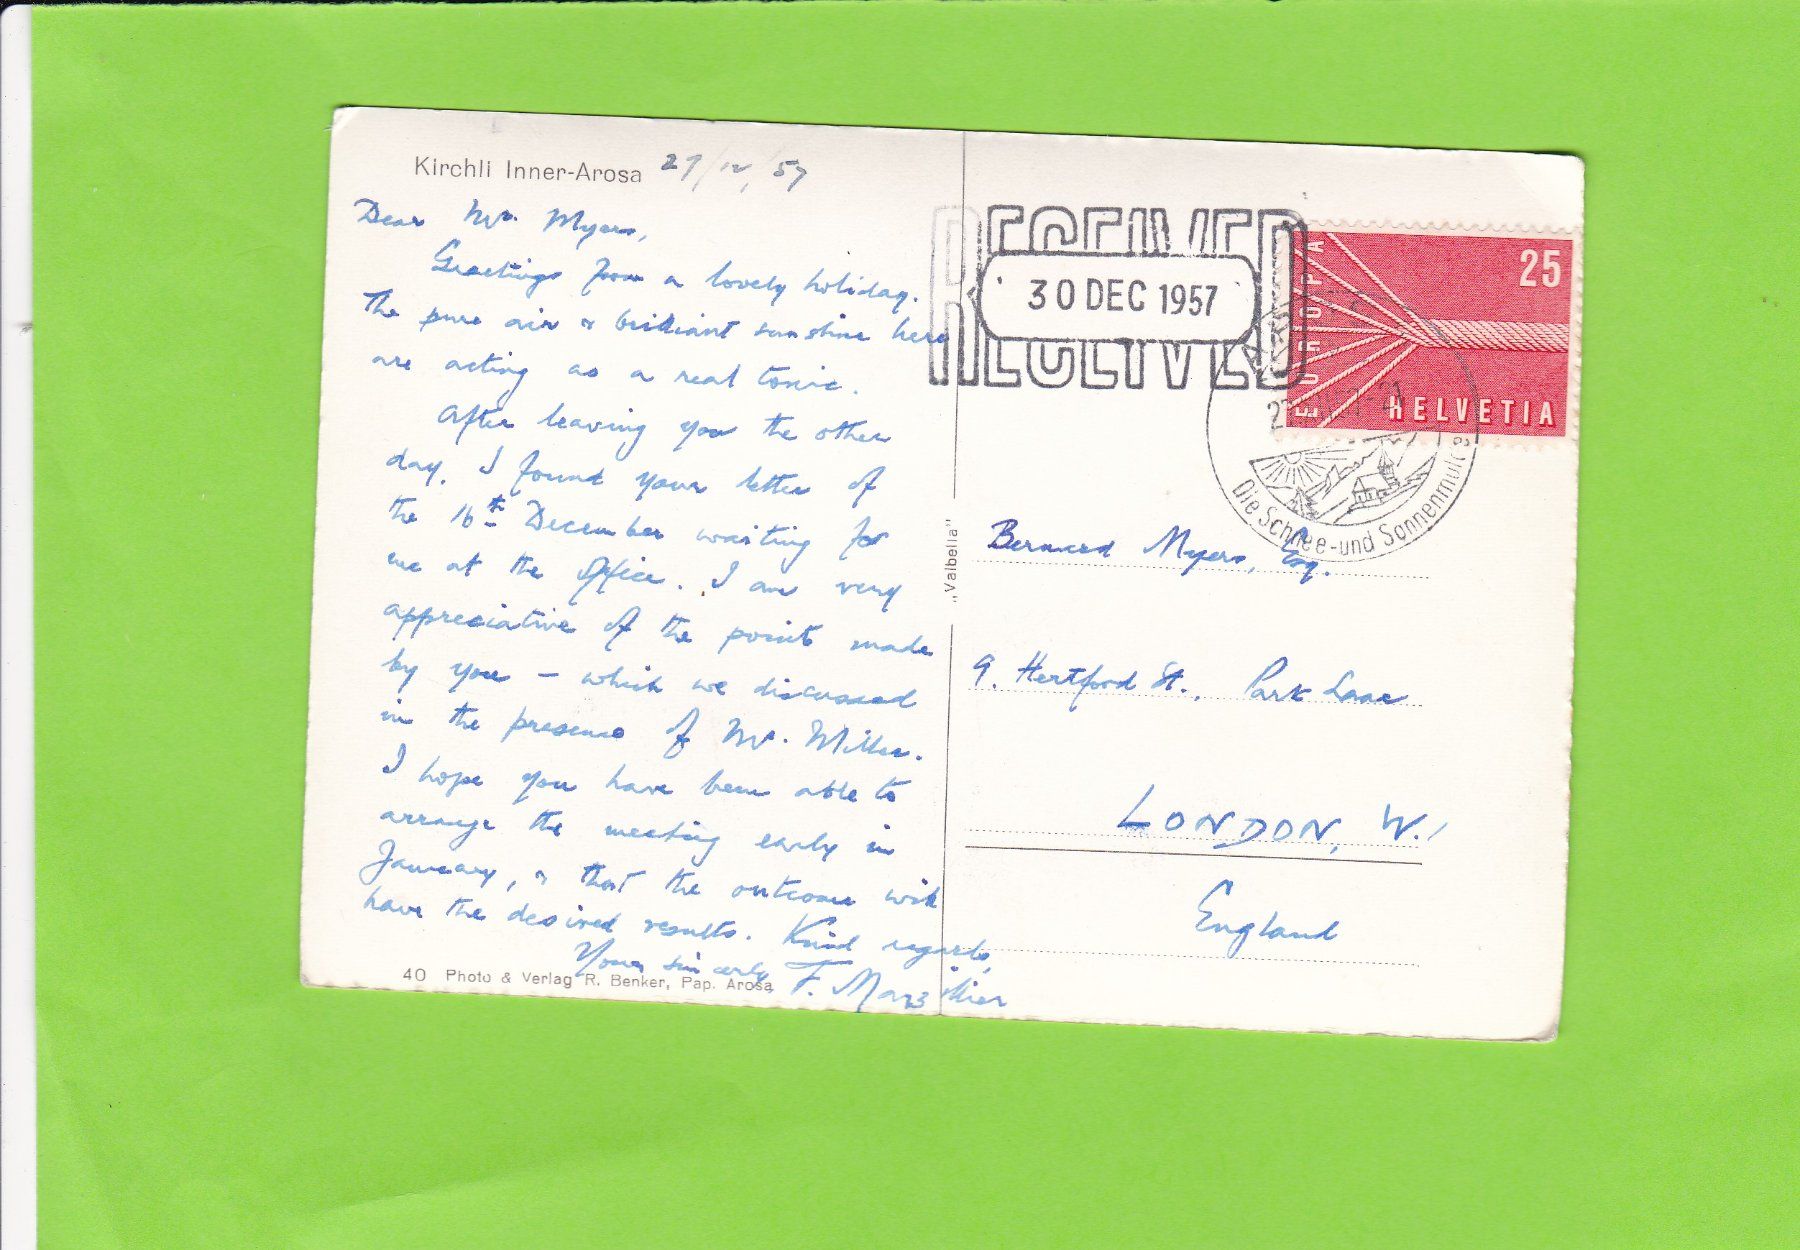 Kirchli Inner-Arosa 27/12/57
Dear Mr. Myers,
Greetings from a lovely holiday.
The pure air & brilliant sunshine here
are acting as a real tonic.
After leaving you the other
day, I found your letter of
the 16th December waiting for
me at the Office. I am very
appreciative of the points made
by you – which we discussed
in the presence of Mr. Miller.
I hope you have been able to
arrange the meeting early in
January, & that the outcome will
have the desired results. Kind regards,
Yours sincerely, F. Marzillier
40 Photo & Verlag R. Benker, Pap. Arosa
„Valbella"
RECEIVED
30 DEC 1957
RECEIVED
25
EUROPA
HELVETIA
Die Schnee- und Sonnen
Bernard Myers, Esq.
9, Hertford St., Park Lane
LONDON, W.1
England